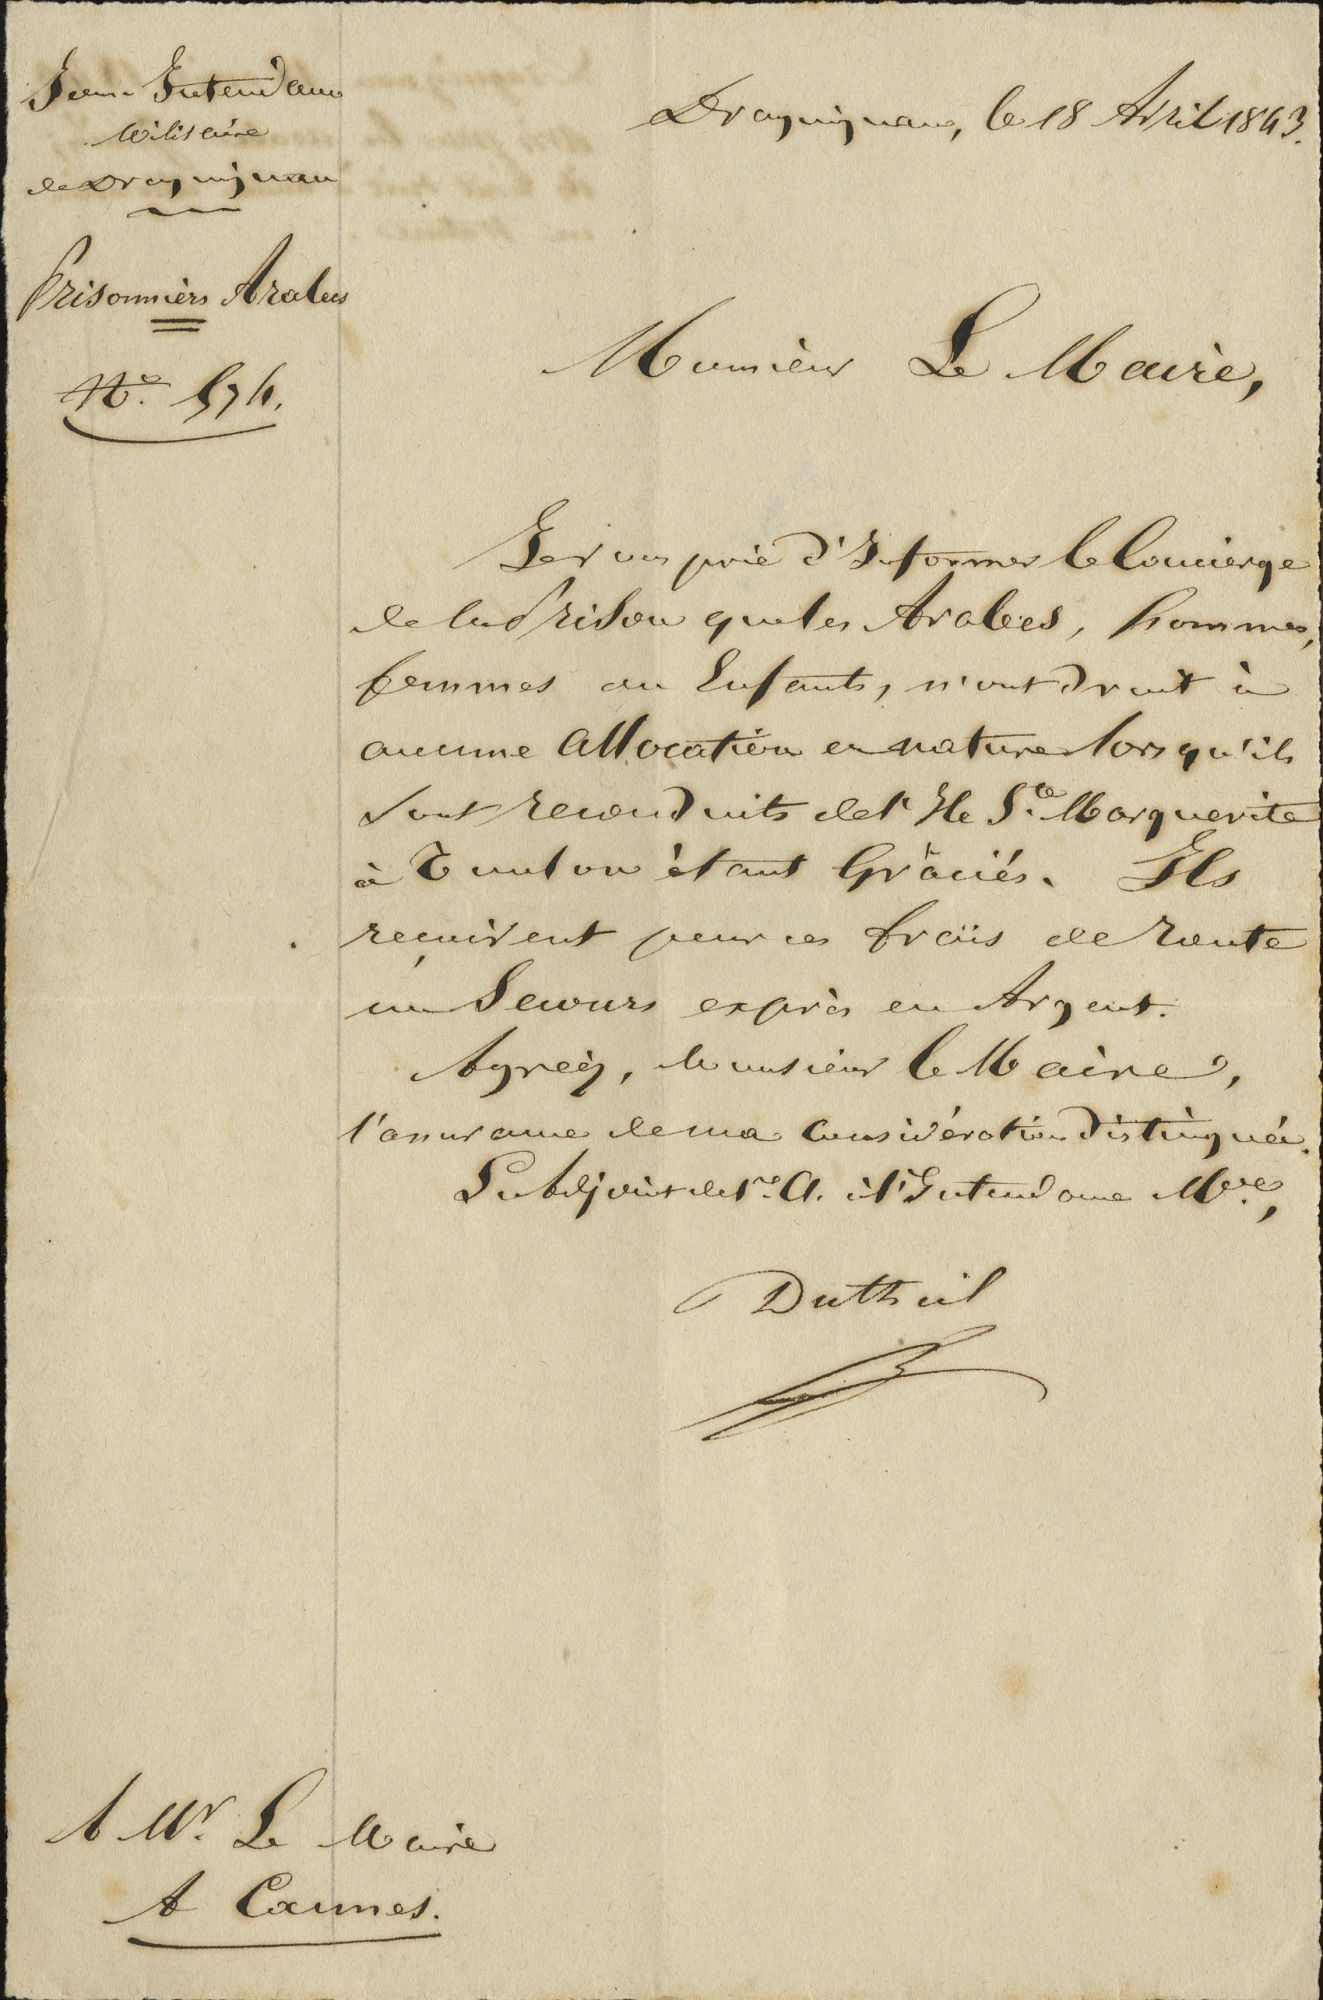 Sous Intendance
Militaire
de Draguignan
Prisonniers Arabes
N.° 574.
Draguignan, le 18 Avril 1843.
Monsieur Le Maire,
Je vous prie d'Informer le Concierge
de la Prison que les Arabes, hommes,
femmes ou Enfants, n'ont droit à
aucune Allocation en nature lorsqu'ils
sont reconduits de l'Ile S.te Marguerite
à Toulon étant Grâciés. Ils
reçoivent pour ces frais de route
un Secours exprès en Argent.
Agréez, Monsieur le Maire,
l'assurance de ma Considération distinguée.
L'Adjoint de 1.re Cl. à l'Intendance M.re,
Dutheil
A M.r Le Maire
A Cannes.